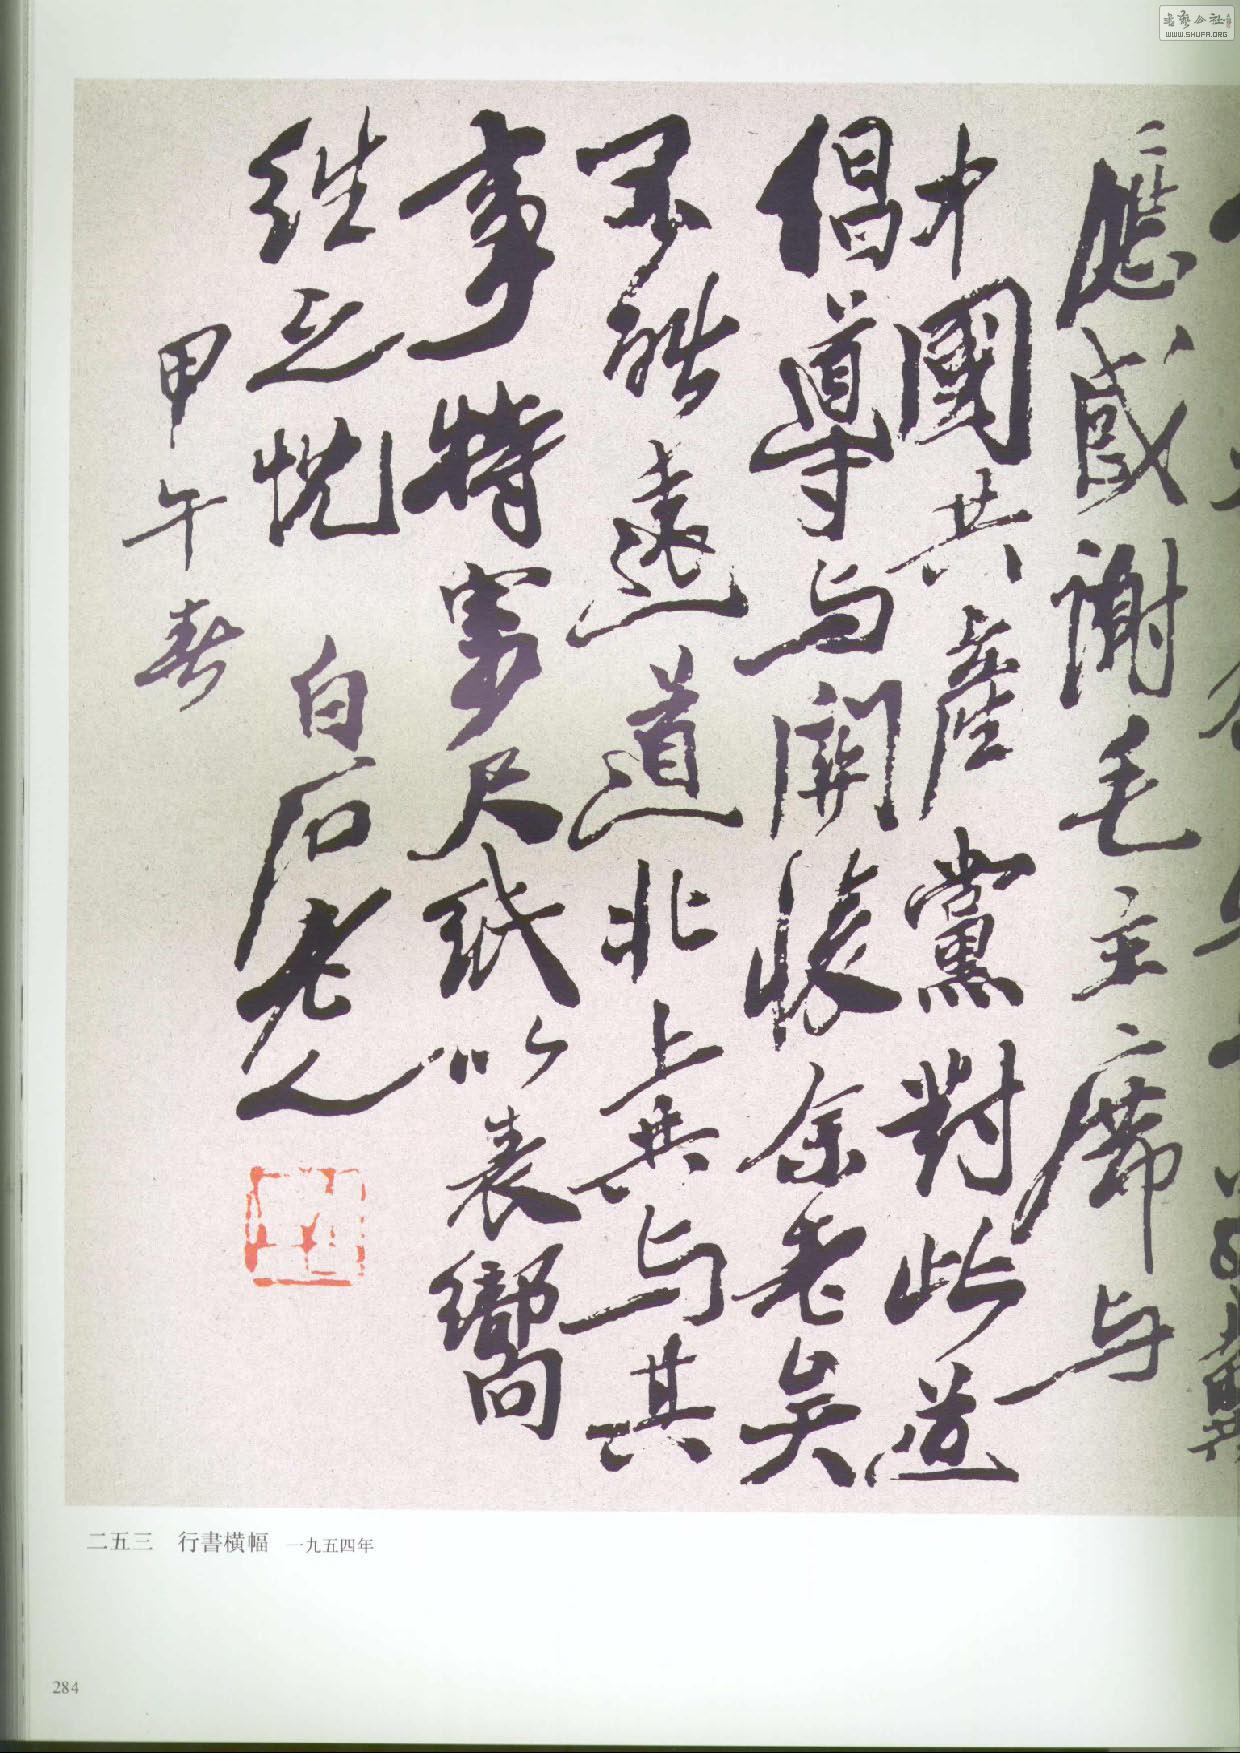 應感謝毛主席与
中國共產黨對此道
倡導与關懷余老矣
不能遠道北上共与其
事特寫尺紙以表嚮
往之忱
白石老人
甲午春
二五三 行書橫幅 一九五四年
284
書藝公社
WWW.SHUFA.ORG